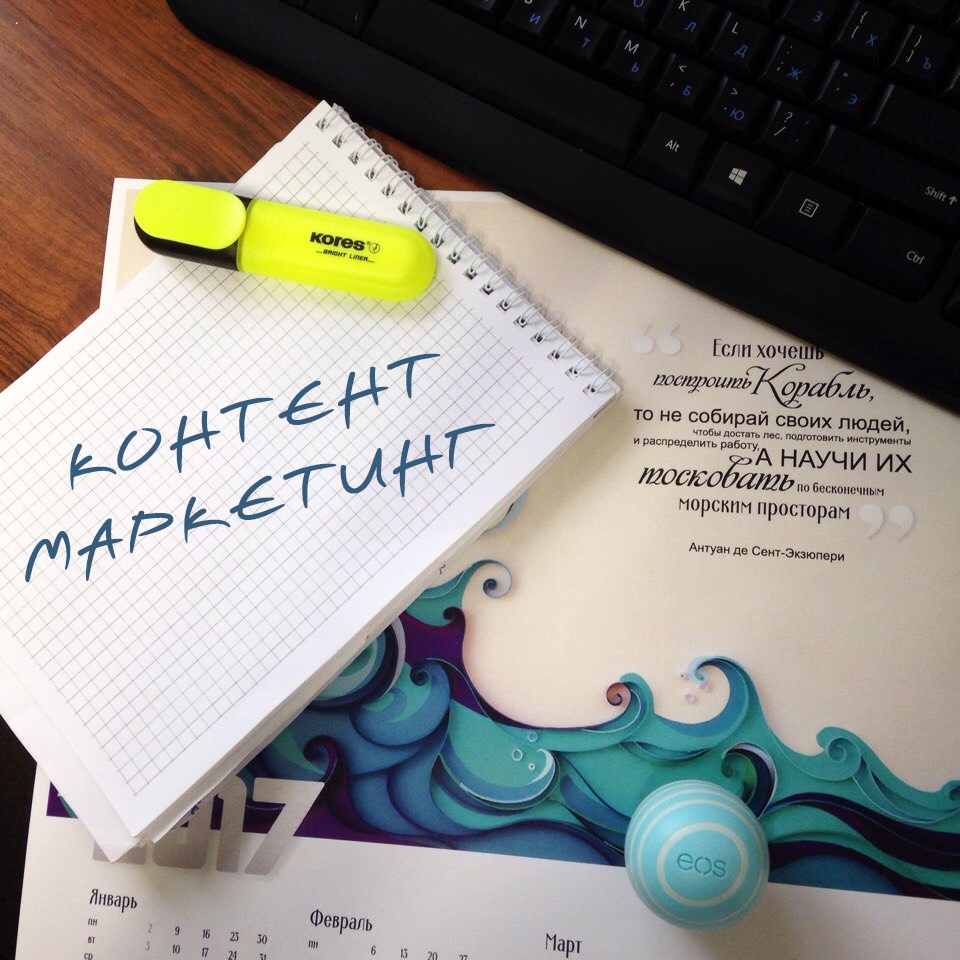 kores
BRIGHT LINER
КОНТЕНТ
МАРКЕТИНГ
Если хочешь
построить Корабль,
то не собирай своих людей,
чтобы достать лес, подготовить инструменты
и распределить работу,
А НАУЧИ ИХ
тосковать по бесконечным
морским просторам
Антуан де Сент-Экзюпери
И
N Т
M Ь
K Л
L Д
< , Б
> . Ю
: ; Ж
" ' Э
? /
З
{ [ Х
} ] Ъ
Alt
Shift
Ctrl
eos
2017
Январь
пн 2 9 16 23 30
вт 3 10 17 24 31
ср
Февраль
пн 6 13 20 27
Март